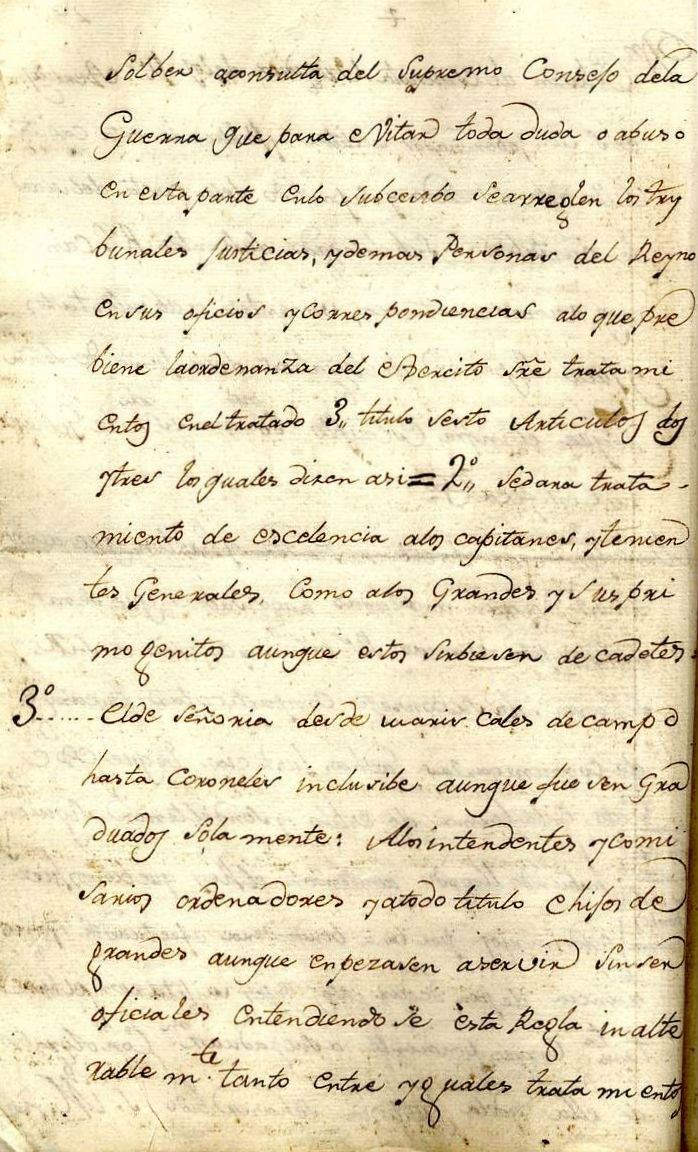 Solber aconsulta del Supremo Consejo dela
Guerra que para evitar toda duda o abuso
en esta parte enlo subcesibo searreglen los try
bunales Justicias, ydemas Personas del Reyno
ensus oficios ycorres pondiencias alo que pre
biene laordenanza del exercito sre trata mi
entos enel tratado 3,, titulo sesto Articulos dos
ytres los quales dicen asi = 2º,, sedara trata-
miento de escelencia alos capitanes, ytenien
tes Generales, Como alos Grandes y sus pri
mogenitos aunque estos sirbiesen de cadetes:
3º...... Elde señoria desde maris cales de campo
hasta Coroneles inclusibe aunque fuesen Gra
duados sola mente: Alos intendentes ycomi
sarios ordenadores yatodo titulo e hijos de
grandes aunque enpezasen aservir sin ser
oficiales entendiendo se esta Regla in alte
rable mte tanto entre yguales trata mientos